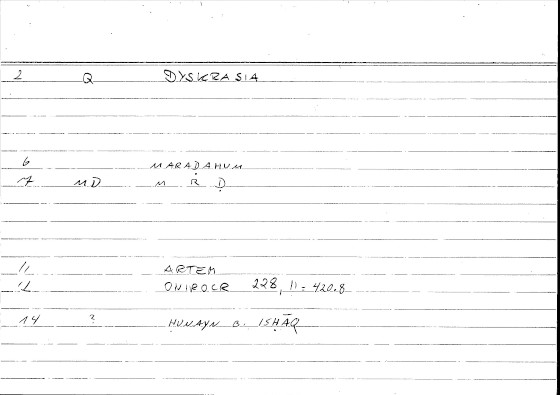 2 Q DYSKRASIA
6 MARAḌAHUM
7 MD M R Ḍ
11 ARTEM
12 ONIROCR 228, 11 = 420.8
14 ? ḤUNAYN B. ISḤĀQ